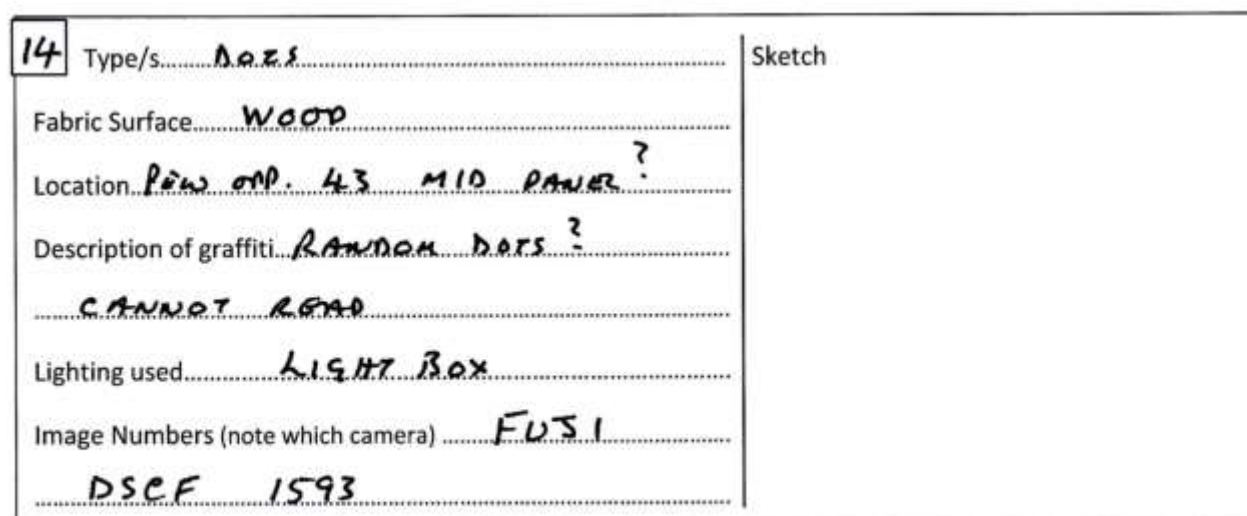 14 Type/s DOTS Sketch
Fabric Surface WOOD
Location PEW OPP. 43 MID PANEL?
Description of graffiti RANDOM DOTS?
CANNOT READ
Lighting used LIGHT BOX
Image Numbers (note which camera) FUJI
DSCF 1593